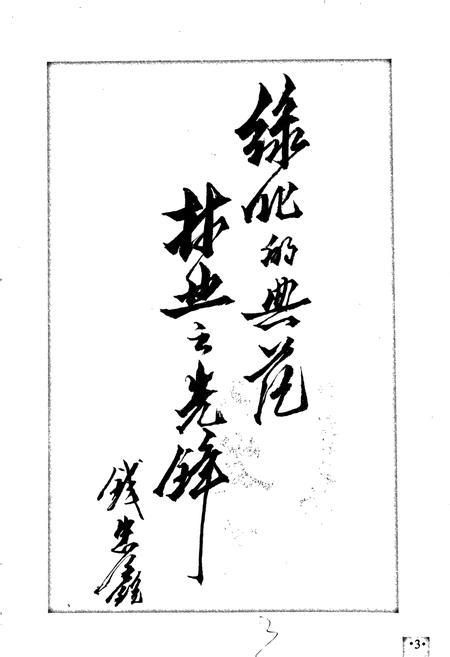 绿化的典范
林业之先锋
钱忠鑫
3
·3·